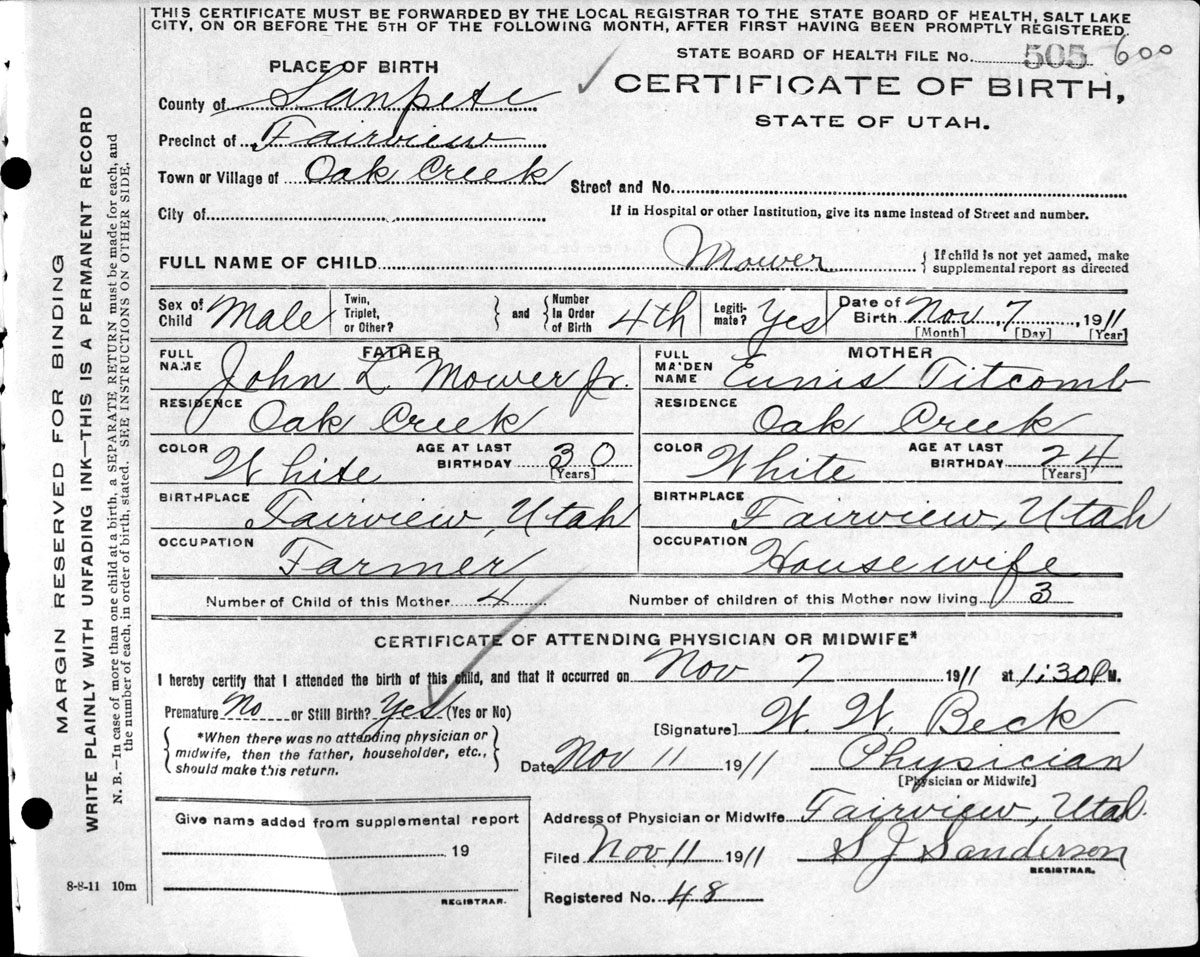 THIS CERTIFICATE MUST BE FORWARDED BY THE LOCAL REGISTRAR TO THE STATE BOARD OF HEALTH, SALT LAKE
CITY, ON OR BEFORE THE 5TH OF THE FOLLOWING MONTH, AFTER FIRST HAVING BEEN PROMPTLY REGISTERED.
STATE BOARD OF HEALTH FILE No. 505 600
PLACE OF BIRTH
CERTIFICATE OF BIRTH,
STATE OF UTAH.
County of Sanpete
Precinct of Fairview
Town or Village of Oak Creek
Street and No.
City of
If in Hospital or other Institution, give its name instead of Street and number.
FULL NAME OF CHILD Mower { If child is not yet named, make
supplemental report as directed
Sex of Child Male Twin, Triplet, or Other? } and { Number In Order of Birth 4th Legiti-mate? Yes Date of Birth Nov, 7, 1911
[Month] [Day] [Year]
FATHER
FULL NAME John L. Mower Jr.
RESIDENCE Oak Creek
COLOR White AGE AT LAST BIRTHDAY 30
[Years]
BIRTHPLACE Fairview, Utah
OCCUPATION Farmer
MOTHER
FULL MAIDEN NAME Eunis Titcomb
RESIDENCE Oak Creek
COLOR White AGE AT LAST BIRTHDAY 24
[Years]
BIRTHPLACE Fairview, Utah
OCCUPATION Housewife
Number of Child of this Mother 4 Number of children of this Mother now living 3
CERTIFICATE OF ATTENDING PHYSICIAN OR MIDWIFE*
I hereby certify that I attended the birth of this child, and that it occurred on Nov 7 1911 at 1:30 P M.
Premature No or Still Birth? Yes (Yes or No)
[Signature] W. W. Beck
*When there was no attending physician or
midwife, then the father, householder, etc.,
should make this return.
Date Nov 11 1911 Physician
[Physician or Midwife]
Address of Physician or Midwife Fairview, Utah.
Filed Nov 11 1911 S J Sanderson
REGISTRAR.
Registered No. 48
Give name added from supplemental report
19
REGISTRAR.
8-8-11 10m
MARGIN RESERVED FOR BINDING
WRITE PLAINLY WITH UNFADING INK—THIS IS A PERMANENT RECORD
N. B.—In case of more than one child at a birth, a SEPARATE RETURN must be made for each, and
the number of each, in order of birth, stated. SEE INSTRUCTIONS ON OTHER SIDE.